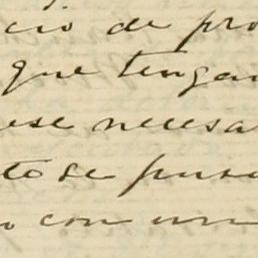 cio de pro
que tengan
ese necesa
to se puse
o con un